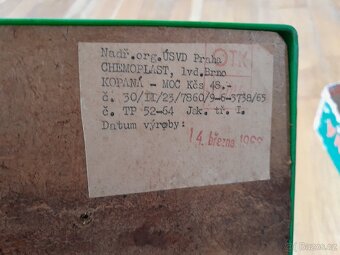 Nadř.org.ÚSVD Praha
OTK
CHEMOPLAST, lvd.Brno
KOPANÁ - MOC Kčs 48.-
č. 30/II/23/7860/9-6-3738/65
č. TP 52-64 Jak. tř. I.
Datum výroby:
14. března